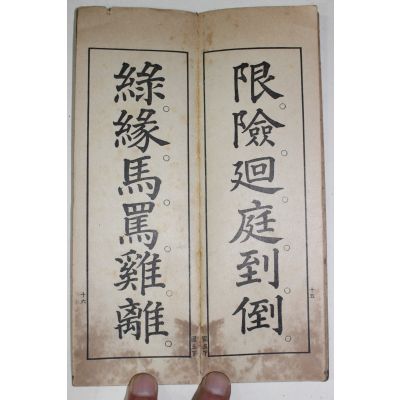 限險廻庭到倒
十五
綠緣馬罵雞離
十六